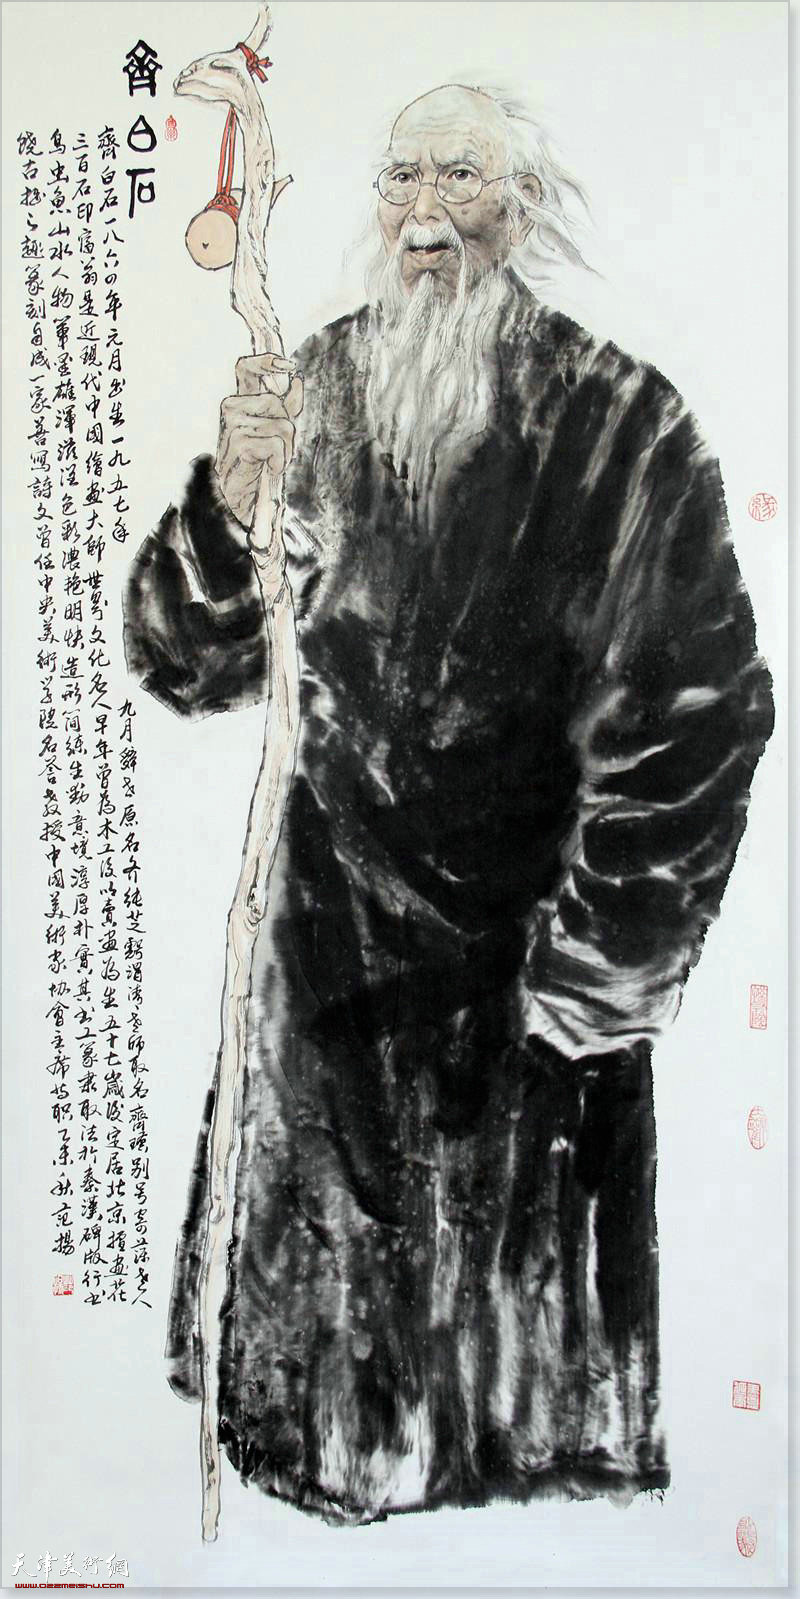 齊白石
齊白石一八六四年元月出生一九五七年
九月辭世原名齊純芝號渭清老師取名齊璜別号寄萍老人
三百石印富翁是近現代中國繪畫大師世界文化名人早年曾為木工後以賣畫為生五十七歲後定居北京擅畫花
鸟虫魚山水人物筆墨雄渾滋潤色彩濃艳明快造形简練生動意境淳厚朴實其书工篆隶取法於秦漢碑版行书
饒古拙之趣篆刻自成一家善寫詩文曾任中央美術学院名誉教授中國美術家协會主席等职乙未秋范揚
天津美術網
www.022meishu.com